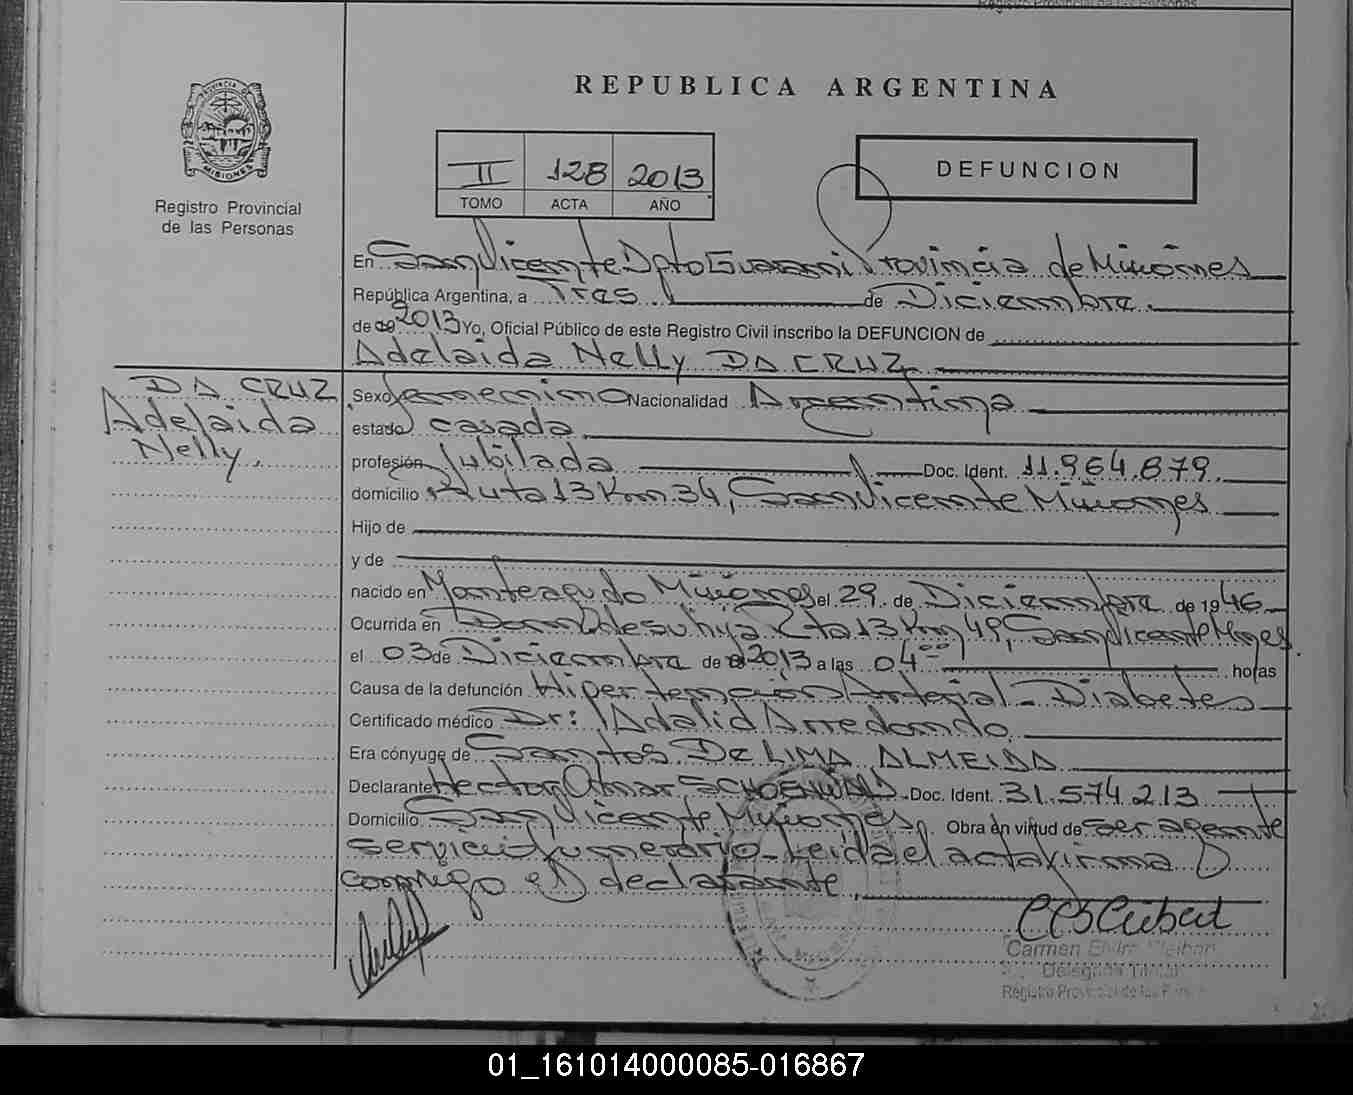 REPUBLICA ARGENTINA
PROVINCIA DE
MISIONES
Registro Provincial
de las Personas
II 128 2013
TOMO ACTA AÑO
DEFUNCION
En San Vicente Dpto Guarani Provincia de Misiones
República Argentina, a Tres de Diciembre
de 2013 Yo, Oficial Público de este Registro Civil inscribo la DEFUNCION de
Adelaida Nelly DA CRUZ
DA CRUZ
Adelaida
Nelly.
Sexo femenino Nacionalidad Argentina
estado casada
profesión Jubilada Doc. Ident. 11.964.879.
domicilio Ruta 13 Km 34, San Vicente Misiones
Hijo de
y de
nacido en Monteagudo Misiones el 29 de Diciembre de 1946
Ocurrida en Dom. de su hija Rta 13 Km 49, San Vicente Mnes
el 03 de Diciembre de 2013 a las 04 00 horas
Causa de la defunción Hipertención Arterial - Diabetes
Certificado médico Dr: Adalid Arredondo
Era cónyuge de Santos De LIMA ALMEIDA
Declarante Hector Omar SCHOENWALD Doc. Ident. 31.574.213
Domicilio San Vicente Misiones Obra en virtud de ser agente
servicio funerario - Leida el acta firma
conmigo el declarante
Carmen
Delegada Titular
Registro Provincial de las
01_161014000085-016867